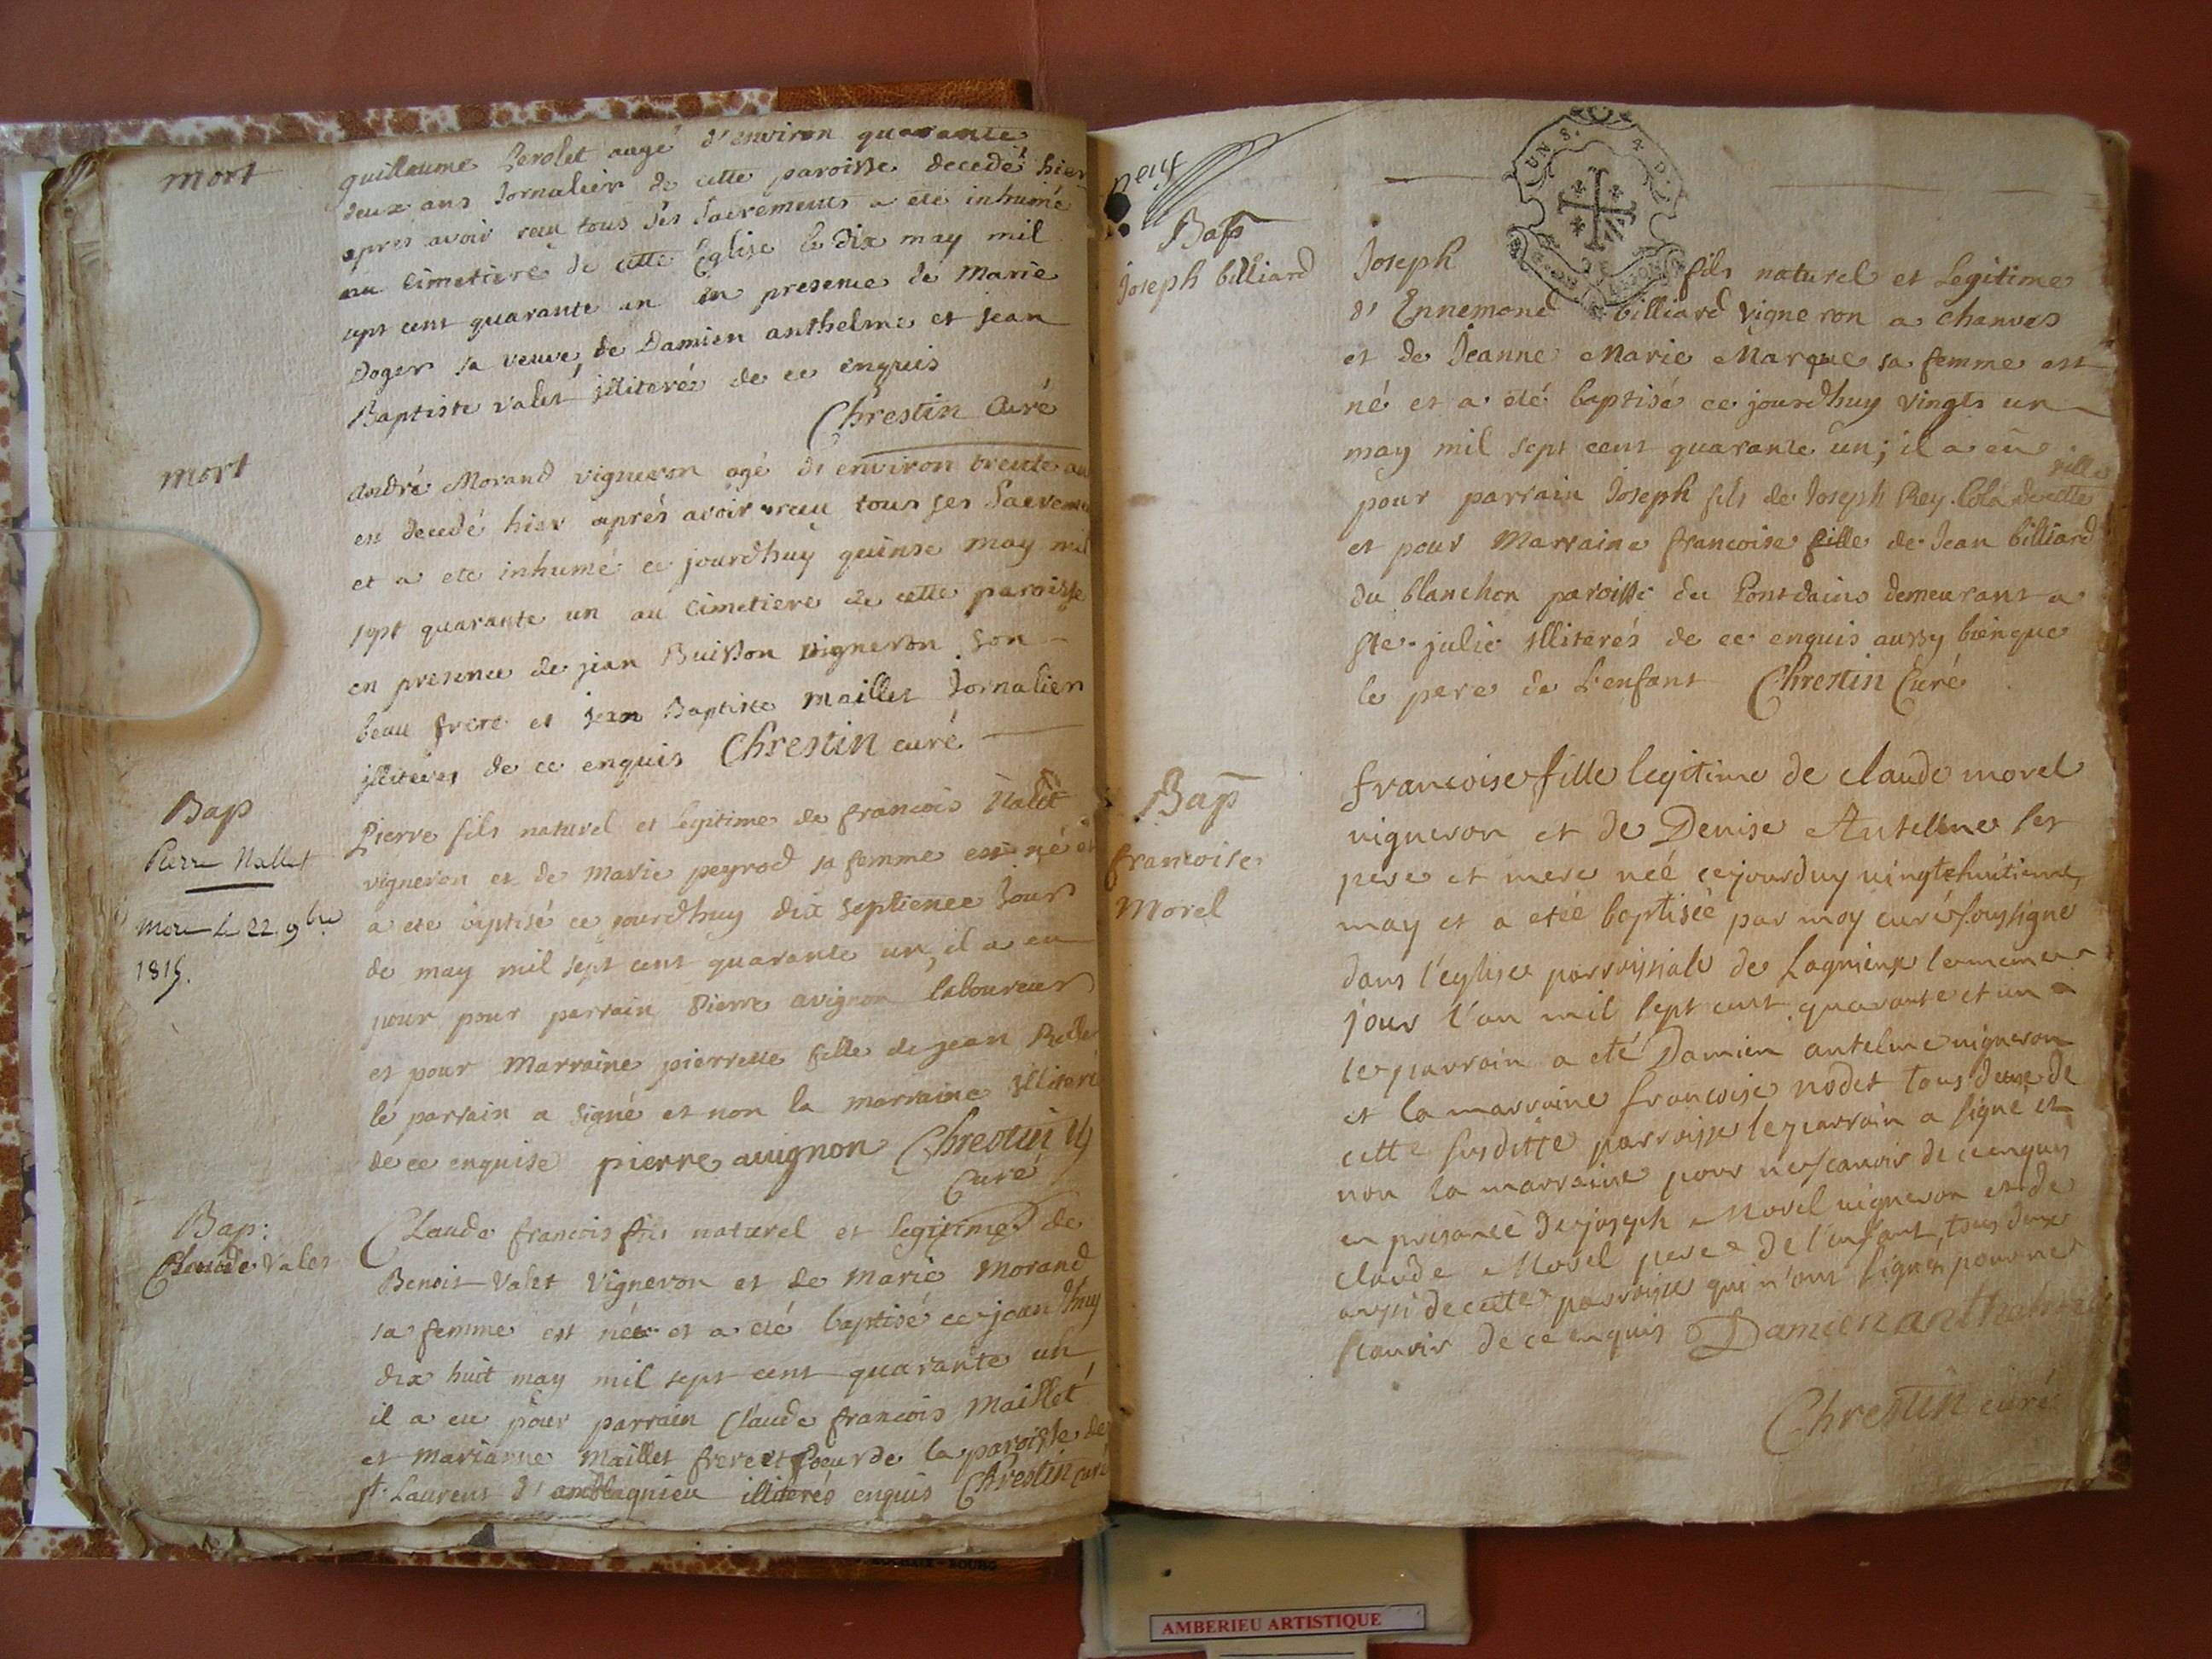 mort
guillaume Perolet aagé d'environ quarante
deux ans Jornalier de cette paroisse decedé hier
apres avoir reçu tous ses Sacrements a été inhumé
au Cimetiere de cette Eglise le dix may mil
sept cent quarante un en presence de Marie
Doger sa veuve, de Damien anthelme et jean
Baptiste valet illiterés de ce enquis
Chrestin Curé
mort
André Morand vigneron agé d'environ trente an
est decedé hier aprés avoir reçu tous ses Sacremen
et a ete inhumé ce jourdhuy quinse may mil
sept quarante un au Cimetiere de cette paroisse
en presence de jean Buisson vigneron son
beau frere et jean Baptiste maillet Jornalier
illiteres de ce enquis Chrestin curé
Bap
Pierre Nallet
Mort le 22 9bre
1815.
Pierre fils naturel et legitime de francois Nalet
vigneron et de Marie peyrod sa femme est né et
a ete baptisé ce jourdhuy dix septieme Jour
de may mil sept cent quarante un, il a eu
pour pour parrain Pierre avignon laboureur
et pour Marraine pierrette fille de jean
le parrain a signé et non la marraine illiteré
de ce enquise pierre auignon Chrestin
Curé
Bap:
Claude Valet
Claude francois fils naturel et legitime de
Benoit Valet Vigneron et de Marie Morand
sa femme est né et a été baptisé ce jourdhuy
dix huit may mil sept cent quarante un
il a eu pour parrain Claude francois Maillet
et Marianne Maillet frere et soeur de la paroisse de
st. Laurent d'amblagnieu illiterés enquis Chrestin curé
neuf
UN S. 4 D.
Bap
Joseph billiard
Joseph fils naturel et Legitime
d'Ennemond billiard vigneron a Chanves
et de Jeanne Marie Marque sa femme est
né et a été baptisé ce jourdhuy vingts un
may mil sept cent quarante un; il a eu
ville
pour parrain Joseph fils de Joseph Rey Cola de cette
et pour Marraine francoise fille de Jean billiard
du blanchon paroisse du Pontdains demeurant a
ste. julie illiterés de ce enquis aussy bienque
le pere de L'enfant Chrestin Curé
Bap
francoise
Morel
francoise fille legitime de claude morel
uigneron et de Denise Antelme ses
pere et mere neé cejourduy uingt huitieme
may et a eteé baptiseé par moy curé sousigne
dans l'eglise parroissiale de Lagnieux le meme
jour l'an mil sept cent quarante et un
le parrain a eté Damien antelme uigneron
et la marraine francoise nodet tous deux de
cette susditte parroisse le parrain a signé et
non la marraine pour ne scauoir de ce enquis
en presence de joseph Morel uigneron et de
claude Morel pere de l'enfant, tous deux
aussi de cette parroisse qui n'ont signés pour ne
scauoir de ce enquis Damien anthelme
Chrestin curé
AMBERIEU ARTISTIQUE